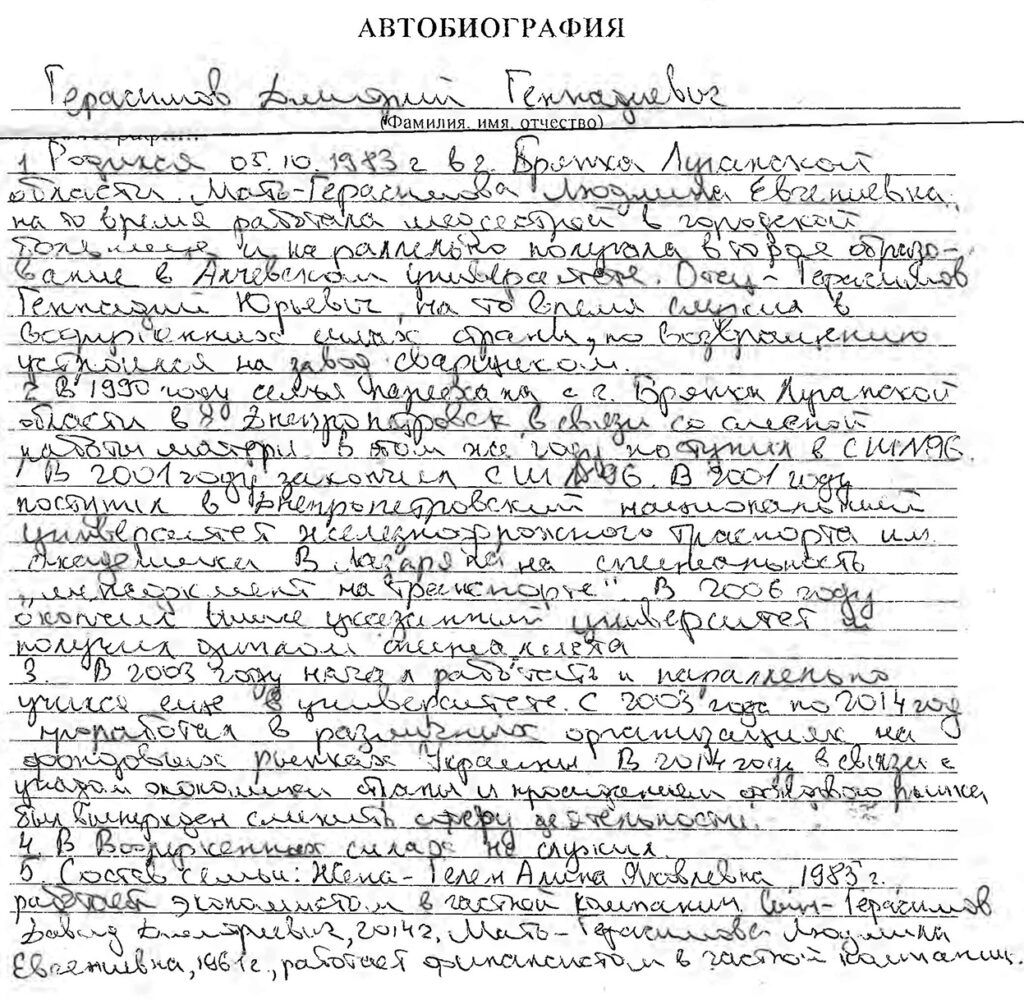 АВТОБИОГРАФИЯ
Герасимов Дмитрий Геннадиевич
(Фамилия, имя, отчество)
1 Родился 05.10.1983 г в г. Брянка Луганской
области. Мать-Герасимова Людмила Евгениевна,
на то время работала медсестрой в городской
больнице и на раллельно получала второе образо-
вание в Алчевском университете. Отец - Герасимов
Геннадий Юрьевич, на то время служил в
Вооруженных силах страны, по возвращению
устроился на завод сварщиком.
2 В 1990 году семья переехала с г. Брянка Луганской
области в г Днепропетровск в связи со сменой
работы матери. В этом же году поступил в СШ №96.
В 2001 году закончил СШ №96. В 2001 году
поступил в Днепропетровский национальный
университет железнодорожного траспорта им.
Академика В Лазаряна на специальность
"менеджмент на транспорте". В 2006 году
окончил выше указанный университет и
получил диплом специалиста
3. В 2003 году начал работать и параллельно
учился еще в университете. С 2003 года по 2014 год
проработал в различных организациях на
фондовых рынках Украины В 2014 году в связи с
упадом экономики страны и проседанием фондового рынка,
был вынужден сменить сферу деятельности.
4. В Вооруженных силах не служил.
5. Состав семьи: Жена - Гелен Алина Яковлевна 1985 г.
работает экономистом в частной компании. Сын - Герасимов
Давид Дмитриевич, 2014г. Мать - Герасимова Людмила
Евгениевна, 1961г., работает финансистом в частной компании.